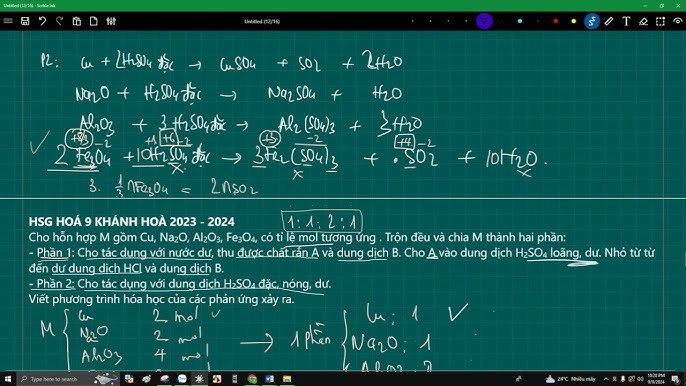 Untitled (12/16) - Scribble Ink
Untitled (12/16)
P2: Cu + 2H2SO4 đặc → CuSO4 + SO2 + 2H2O
Na2O + H2SO4 đặc → Na2SO4 + H2O
Al2O3 + 3H2SO4 đặc → Al2(SO4)3 + 3H2O
+8/3 -2 +1 +6 -2 +3 -2 +4 -2
2Fe3O4 + 10H2SO4 đặc → 3Fe2(SO4)3 + SO2 + 10H2O.
x x x
3. 1/3 nFe3O4 = 2nSO2
HSG HOÁ 9 KHÁNH HOÀ 2023 - 2024 1:1:2:1
Cho hỗn hợp M gồm Cu, Na2O, Al2O3, Fe3O4, có tỉ lệ mol tương ứng . Trộn đều và chia M thành hai phần:
- Phần 1: Cho tác dụng với nước dư, thu được chất rắn A và dung dịch B. Cho A vào dung dịch H2SO4 loãng, dư. Nhỏ từ từ
đến dư dung dịch HCl và dung dịch B.
- Phần 2: Cho tác dụng với dung dịch H2SO4 đặc, nóng, dư.
Viết phương trình hóa học của các phản ứng xảy ra.
M Cu 2 mol → 1 phần Cu: 1
Na2O 2 mol Na2O: 1
Al2O3 4 mol Al2O3: 2
Type here to search
24°C Nhiều mây
10:20 PM
9/9/2024